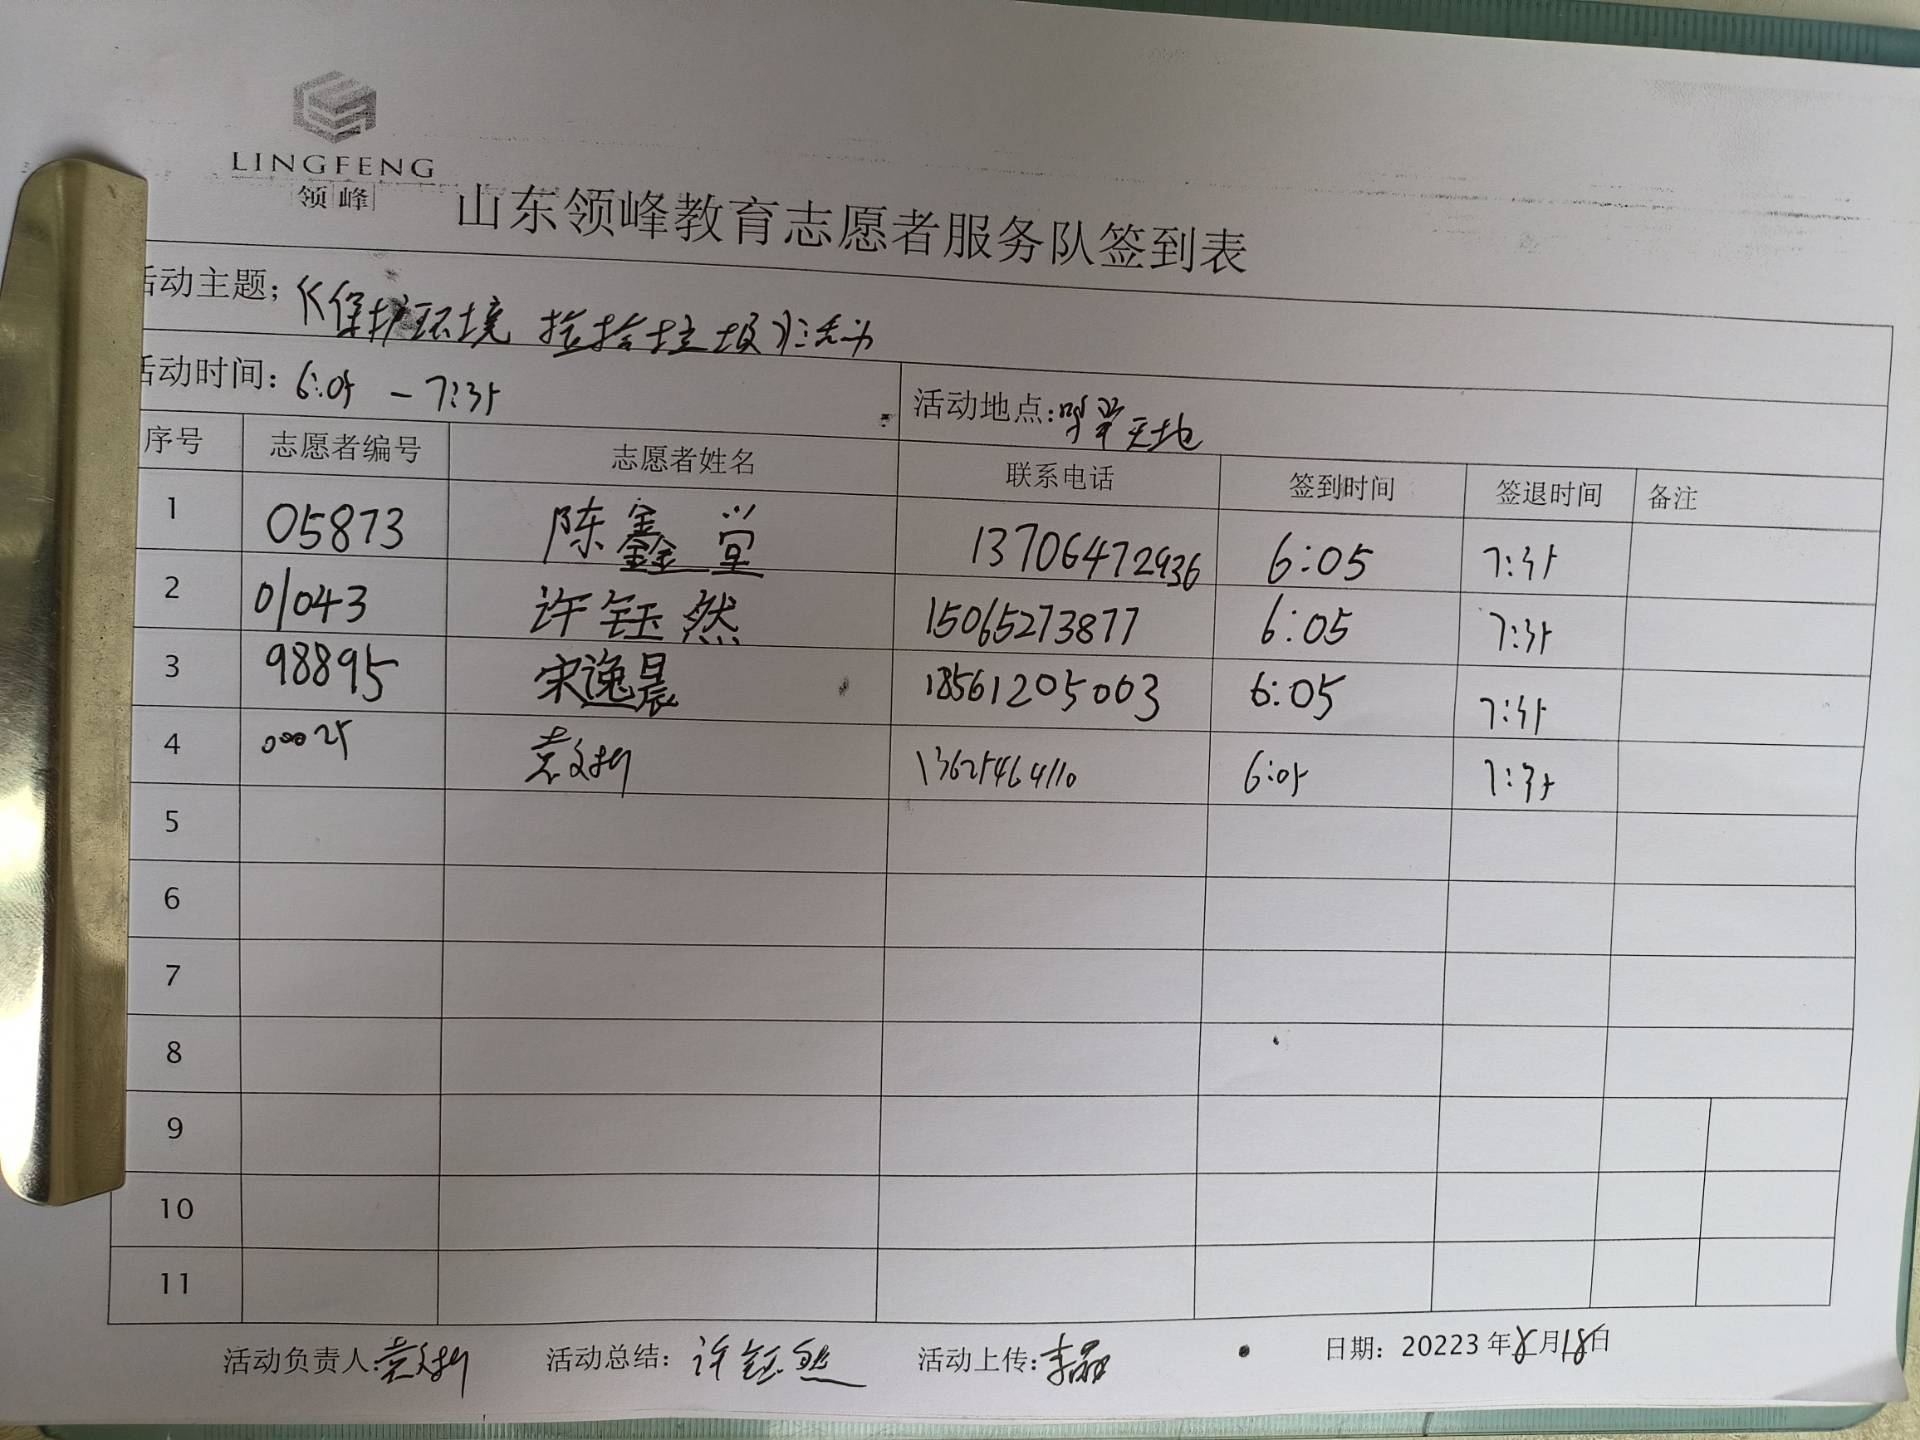 LINGFENG
领峰
山东领峰教育志愿者服务队签到表
活动主题；《保护环境 捡拾垃圾》活动
活动时间：6:05 — 7:35 活动地点：天地
序号 志愿者编号 志愿者姓名 联系电话 签到时间 签退时间 备注
1 05873 陈鑫堂 13706472936 6:05 7:35
2 01043 许钰然 15065273877 6:05 7:35
3 98895 宋逸晨 18561205003 6:05 7:35
4 00025 袁 13625464110 6:05 7:35
5
6
7
8
9
10
11
活动负责人：袁 活动总结：许钰然 活动上传：李 日期：20223年8月18日